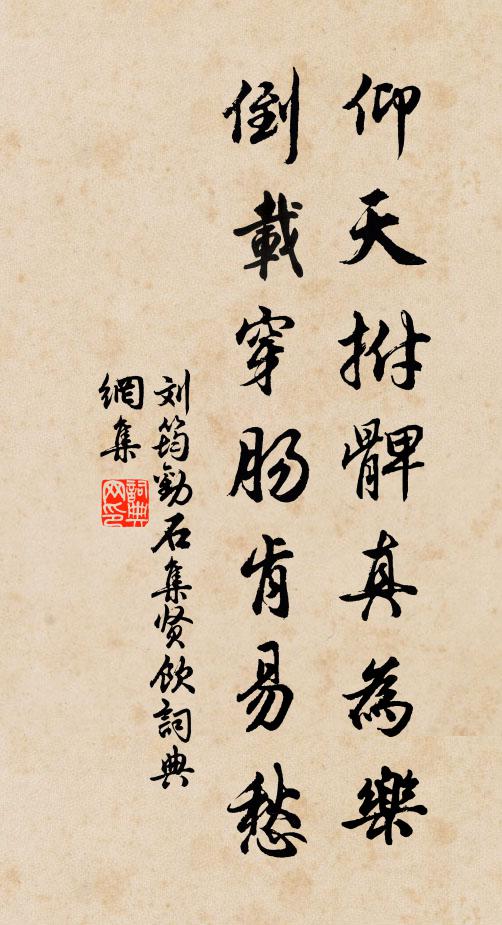 仰天拊髀真為樂
倒載穿肠肯易愁
刘筠勸石集贤饮詞典
網集
詞典网印